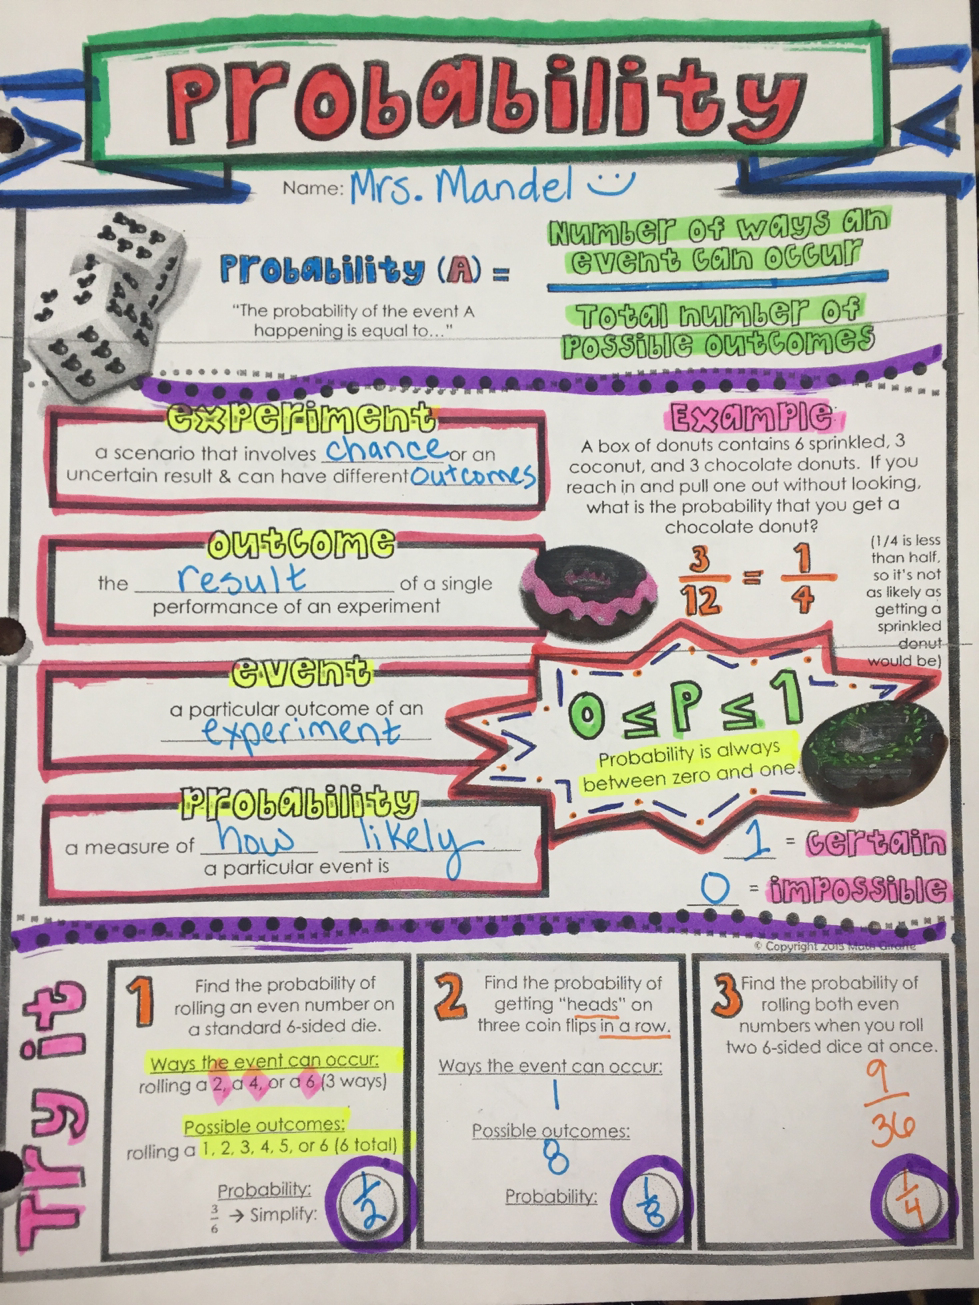 Probability
Name: Mrs. Mandel
Probability (A) =
Number of ways an
event can occur
Total number of
possible outcomes
"The probability of the event A
happening is equal to..."
experiment
a scenario that involves chance or an
uncertain result & can have different outcomes
outcome
the result of a single
performance of an experiment
event
a particular outcome of an
experiment
probability
a measure of how likely
a particular event is
Example
A box of donuts contains 6 sprinkled, 3
coconut, and 3 chocolate donuts. If you
reach in and pull one out without looking,
what is the probability that you get a
chocolate donut?
3/12 = 1/4
(1/4 is less
than half,
so it's not
as likely as
getting a
sprinkled
donut
would be)
0 ≤ P ≤ 1
Probability is always
between zero and one.
1 = certain
0 = impossible
© Copyright 2015 Math Giraffe
Try it
1 Find the probability of
rolling an even number on
a standard 6-sided die.
Ways the event can occur:
rolling a 2, a 4, or a 6 (3 ways)
Possible outcomes:
rolling a 1, 2, 3, 4, 5, or 6 (6 total)
Probability:
3/6 → Simplify: 1/2
2 Find the probability of
getting "heads" on
three coin flips in a row.
Ways the event can occur:
1
Possible outcomes:
8
Probability: 1/8
3 Find the probability of
rolling both even
numbers when you roll
two 6-sided dice at once.
9/36
1/4